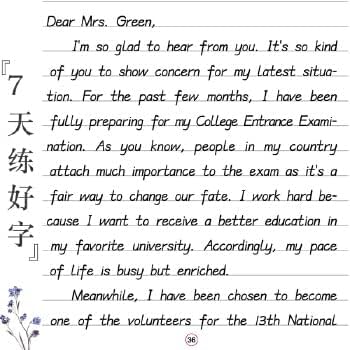 『7天练好字』
Dear Mrs. Green,
I'm so glad to hear from you. It's so kind
of you to show concern for my latest situa-
tion. For the past few months, I have been
fully preparing for my College Entrance Exami-
nation. As you know, people in my country
attach much importance to the exam as it's a
fair way to change our fate. I work hard be-
cause I want to receive a better education in
my favorite university. Accordingly, my pace
of life is busy but enriched.
Meanwhile, I have been chosen to become
one of the volunteers for the 13th National
36